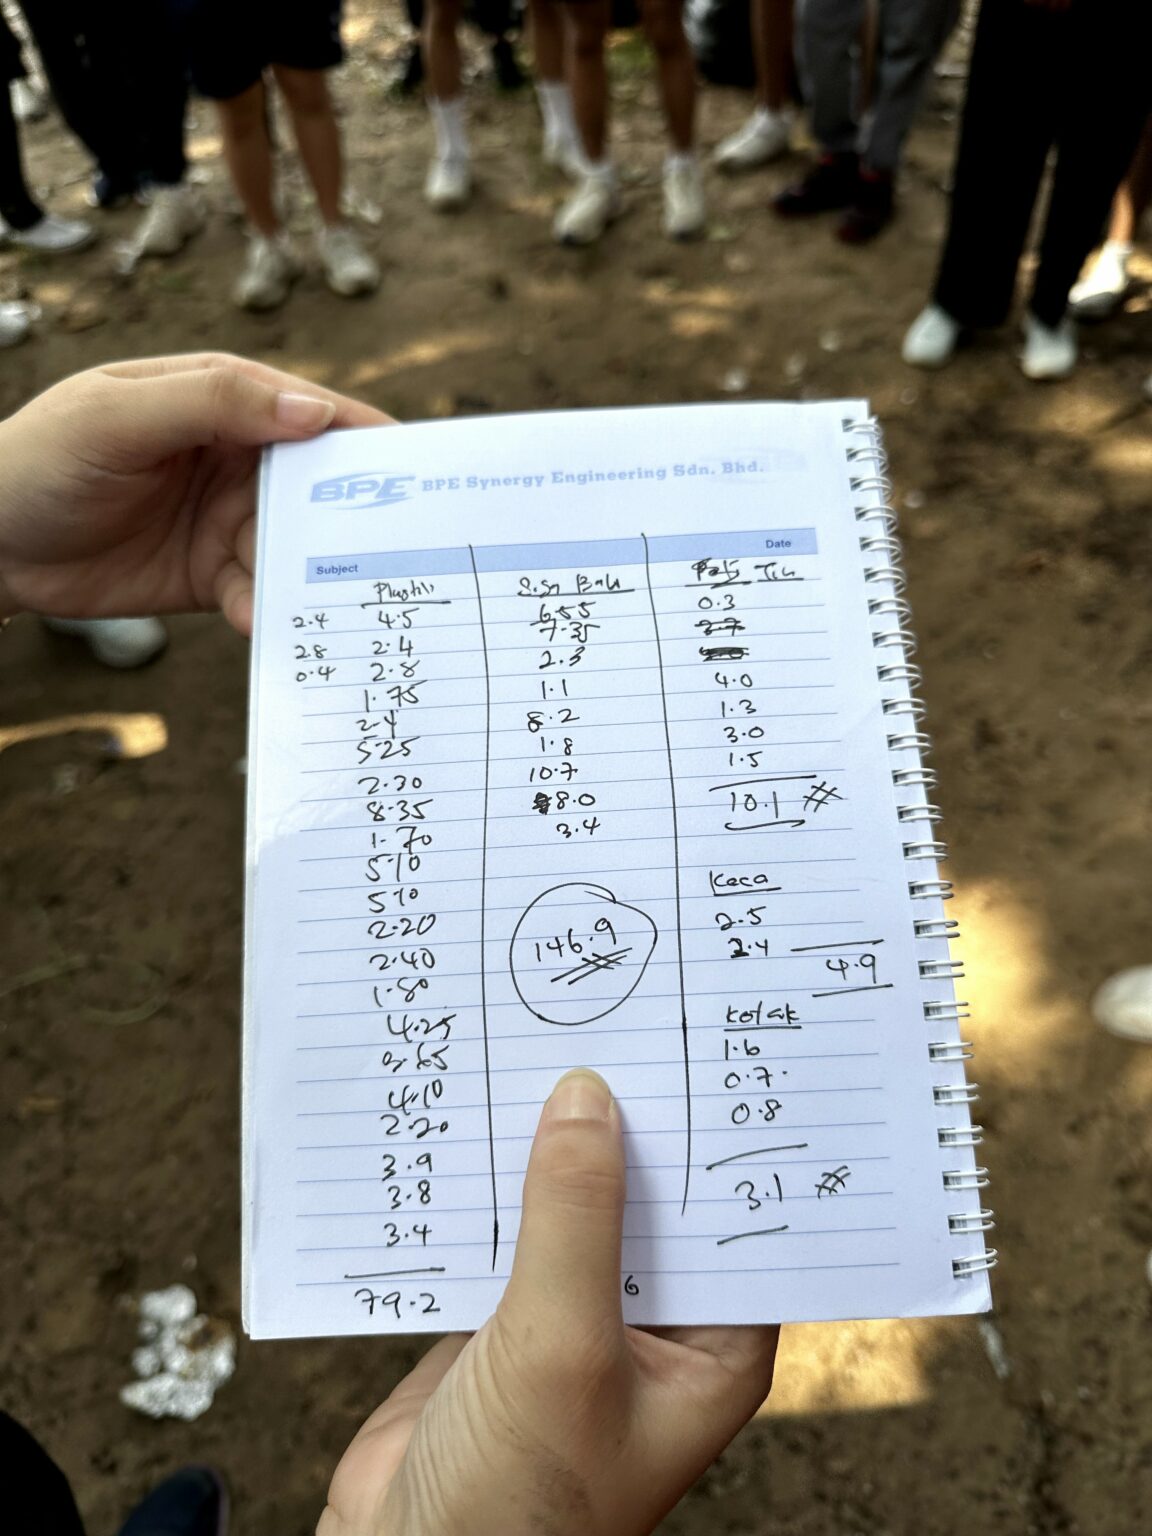 BPE BPE Synergy Engineering Sdn. Bhd.
Subject
Date
2.4
28
0.4
4.5
2.4
2.8
1.75
2.4
5.25
2.30
8.35
1.70
5.10
5.10
2.20
2.40
1.80
4.25
4.10
2.20
3.9
3.8
3.4
79.2
6.55
7.35
2.3
1.1
8.2
1.8
10.7
8.0
3.4
146.9
6
Tin
0.3
4.0
1.3
3.0
1.5
10.1
Kaca
2.5
2.4
4.9
Kotak
1.6
0.7
0.8
3.1